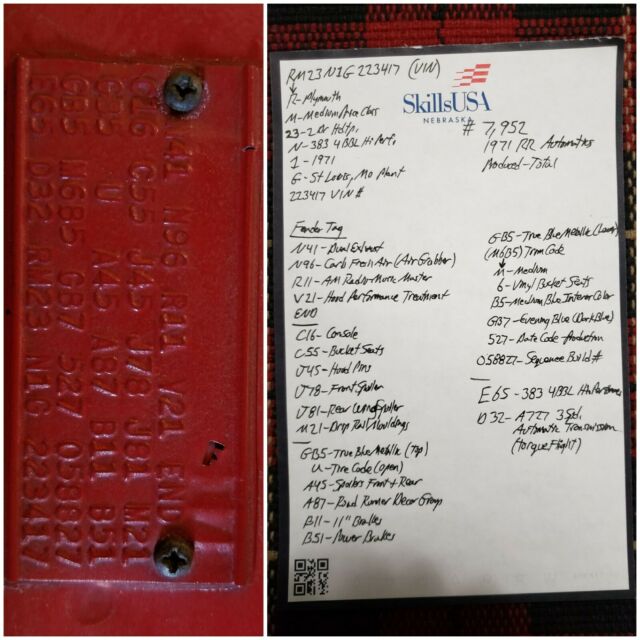 N41 N96 R11 V21 END
C16 C55 J45 J78 J81 M21
GB5 U A45 A87 B11 B51
GB5 M6B5 GB7 527 058827
E65 D32 RM23 N1G 223417
RM23N1G223417 (VIN)
R-Plymouth
M-Medium Price Class
23-2 Dr Hdtp.
N-383 4BBL Hi Perf.
1-1971
G-St Louis, Mo Plant
223417 VIN#
SkillsUSA
NEBRASKA
# 7,952
1971 RR Automatics
Produced-Total
Fender Tag
N41-Dual Exhaust
N96-Carb Fresh Air (Air Grabber)
R11-AM Radio-Music Master
V21-Hood Performance Treatment
END
C16-Console
C55-Bucket Seats
J45-Hood Pins
J78-Front Spoiler
J81-Rear Wing Spoiler
M21-Drip Rail Mouldings
GB5-True Blue Metallic (Top)
U-Tire Code (open)
A45-Spoilers Front + Rear
A87-Road Runner Decor Group
B11-11" Brakes
B51-Power Brakes
GB5-True Blue Metallic (Lower)
(M6B5) Trim Code
M-Medium
6-Vinyl Bucket Seats
B5-Medium Blue Interior Color
GB7-Evening Blue (Dark Blue)
527-Date Code-Production
058827-Sequence Build #
E65-383 4BBL Hi Performance
D32-A727 3 Spd.
Automatic Transmission
(torqueflight)